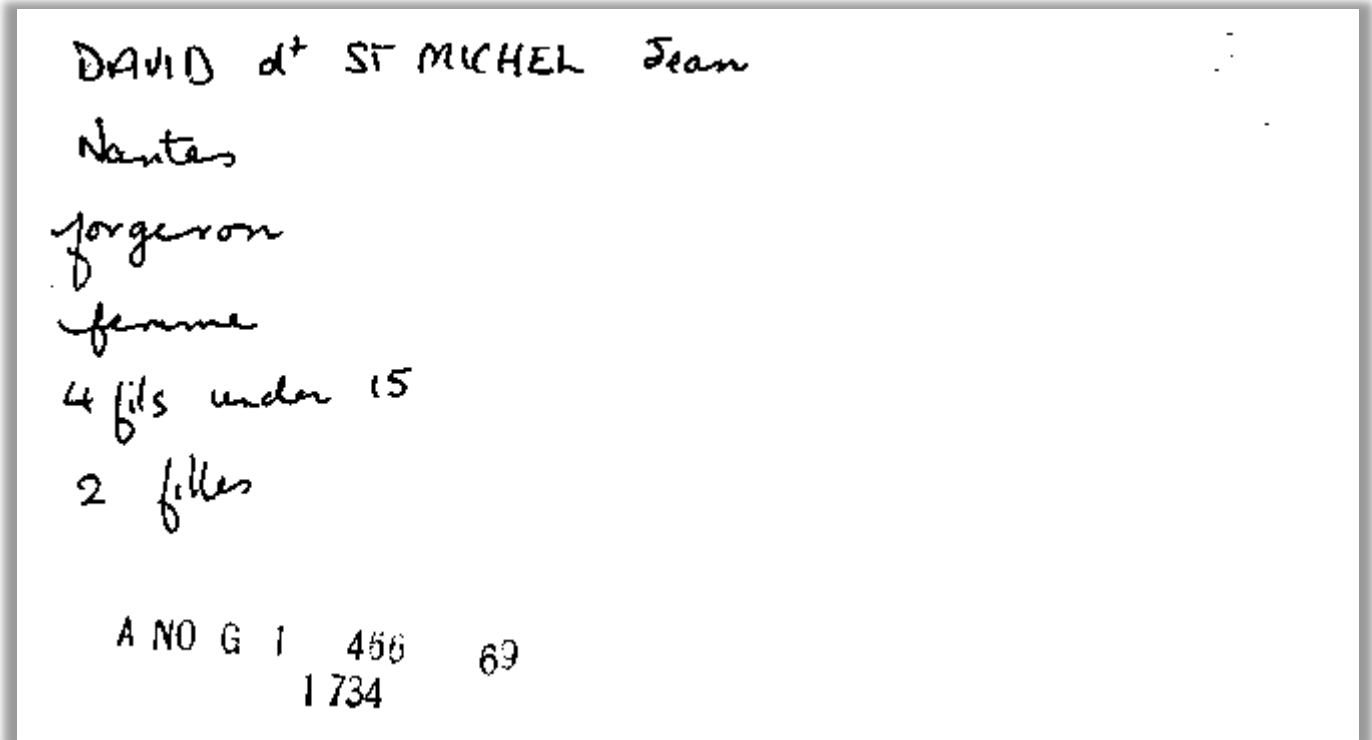 DAVID dt ST MICHEL Jean
Nantes
forgeron
femme
4 fils under 15
2 filles
A NO G 1 466 69
1734